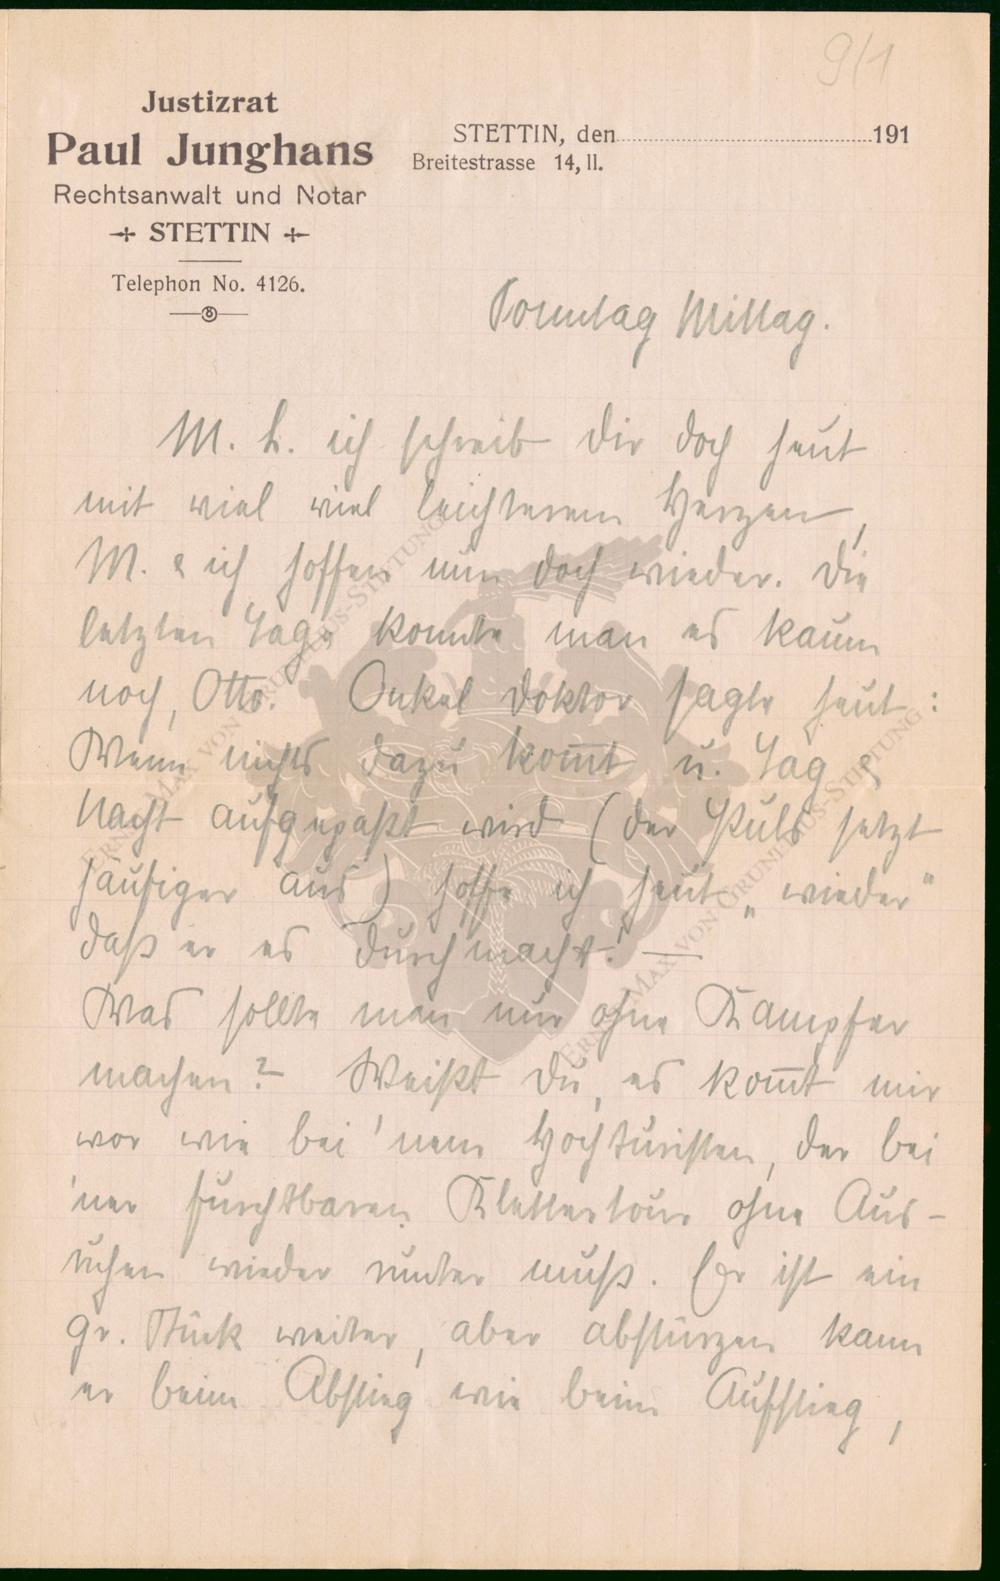 9/1
Justizrat
Paul Junghans
Rechtsanwalt und Notar
STETTIN
Telephon No. 4126.
STETTIN, den 191
Breitestrasse 14, II.
Sonntag Mittag.
M. L. ich schreib dir doch heut
mit viel viel leichterem Herzen,
M. & ich hoffen nun doch wieder. Die
letzten Tage konnte man es kaum
noch, Otto. Onkel Doktor sagte heut:
Wenn nichts dazu kom̅t u. Tag &
Nacht aufgepaßt wird (der Puls setzt
häufiger aus) hoffe ich heut „wieder"
daß er es durchmacht. —
Was sollte man nur ohne Kampfer
machen? Weißt du, es kom̅t mir
vor wie bei 'nem Hochturisten, der bei
'ner furchtbaren Klettertour ohne Aus-
ruhen wieder runter muß. Er ist ein
gr. Stück weiter, aber abstürzen kann
er beim Abstieg wie beim Aufstieg,
ERNST-MAX VON GRUNELIUS-STIFTUNG
ERNST-MAX VON GRUNELIUS-STIFTUNG